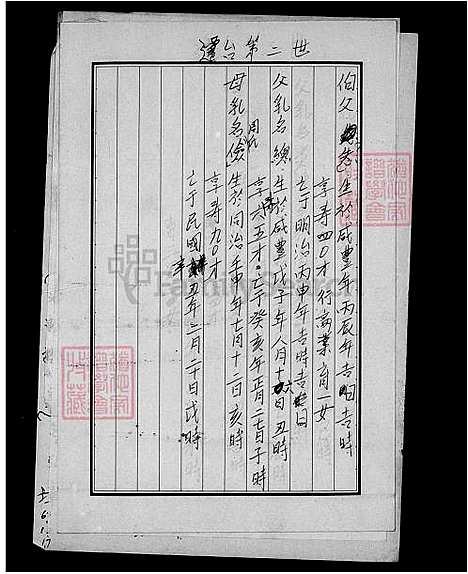 遷台第二世
伯父 生於咸豊年丙辰年吉日吉時
享寿四0才 行商業育一女
亡于明治丙申年吉時吉日
父乳名總 生於咸豊戊子年八月十六日丑時
享六五才。亡于癸亥年正月二七日子時
周氏
母乳名儉 生於同治壬申年七月十二日亥時
享寿九0才
亡于民國辛丑年二月二十日戌時